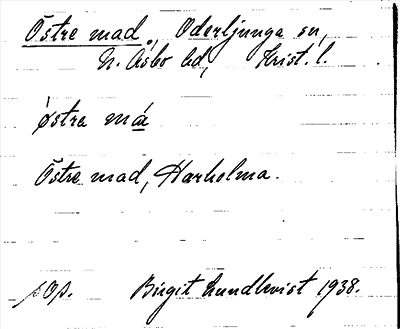 Östre mad., Oderljunga sn,
N. Åsbo hd, Krist. l.
östra må
Östre mad, Harholma.
Birgit Lundkvist 1938.